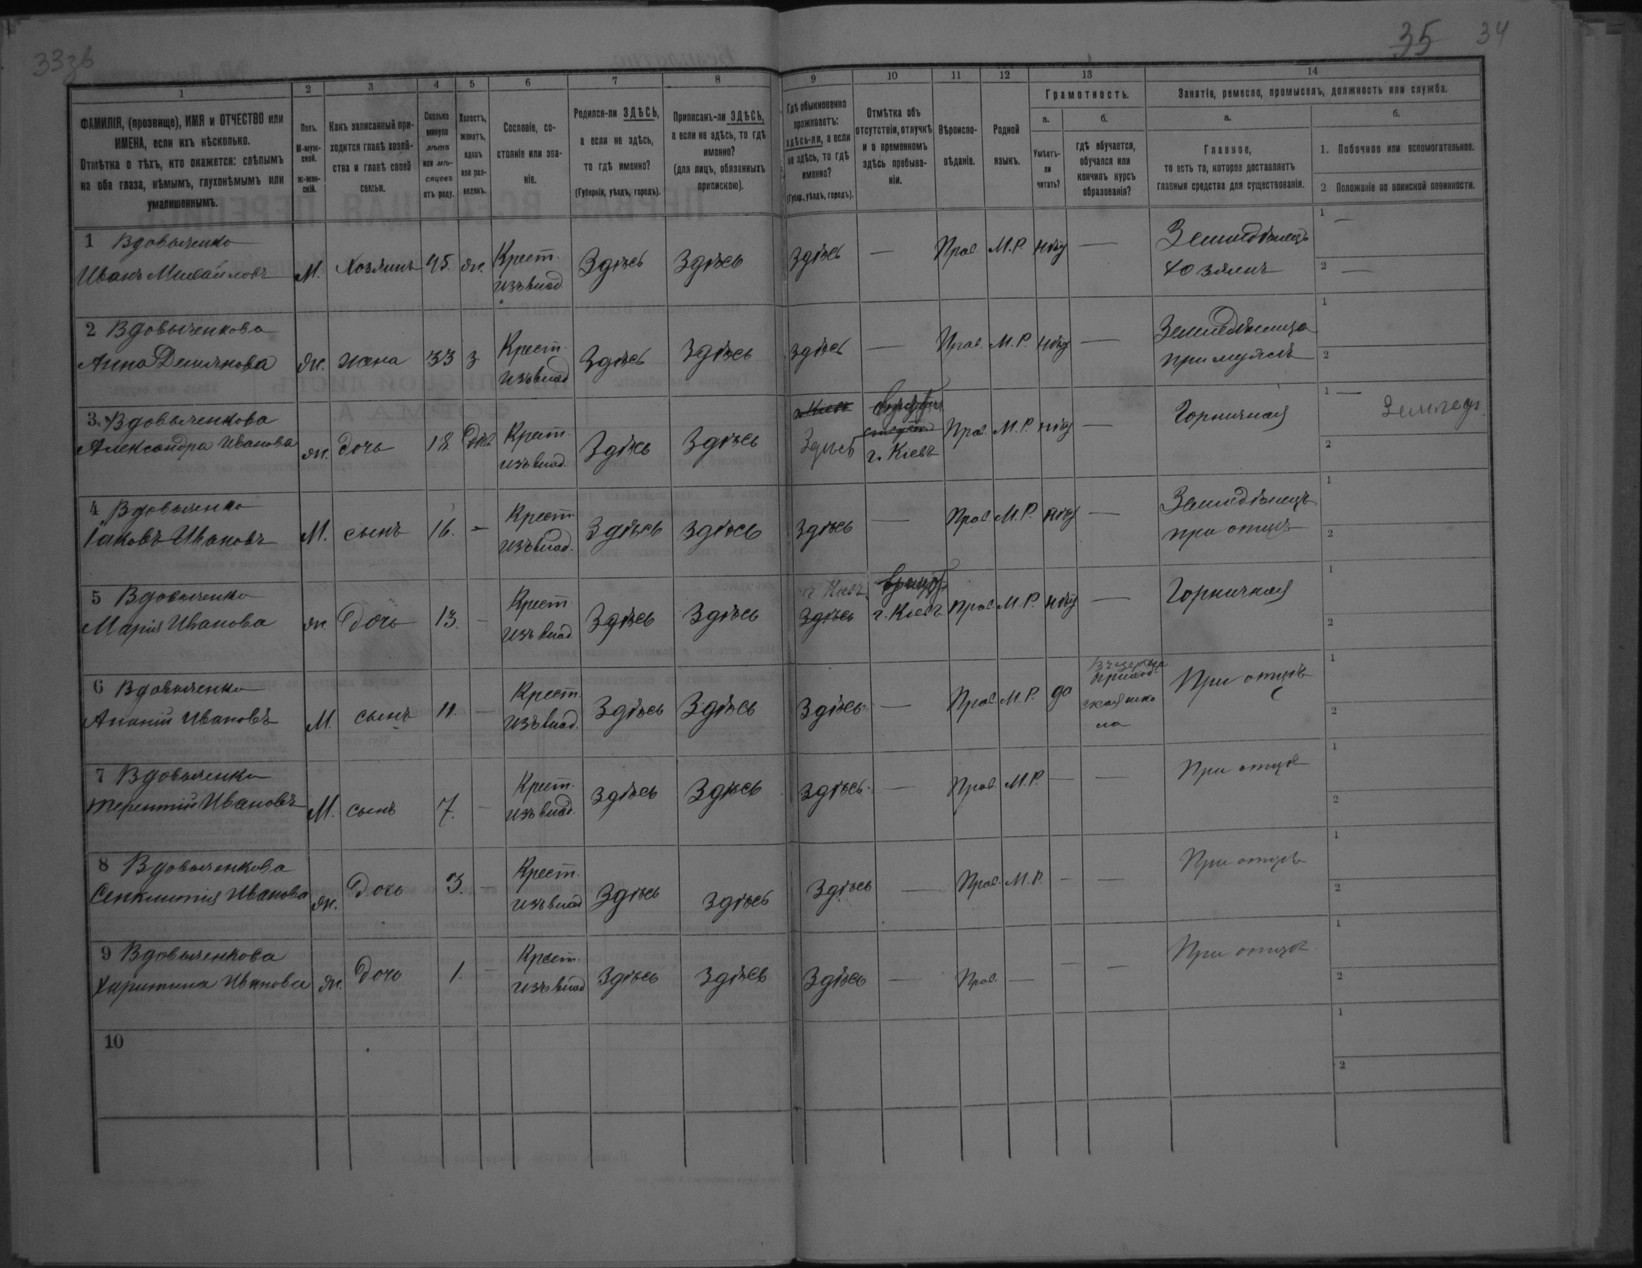 33зв
35 34
1 2 3 4 5 6 7 8 9 10 11 12 13 14
ФАМИЛІЯ, (прозвище), ИМЯ и ОТЧЕСТВО или
ИМЕНА, если ихъ нѣсколько.
Отмѣтка о тѣхъ, кто окажется: слѣпымъ
на оба глаза, нѣмымъ, глухонѣмымъ или
умалишеннымъ.
Полъ.
М-муж-
ской.
Ж-жен-
скій.
Какъ записанный при-
ходится главѣ хозяй-
ства и главѣ своей
семьи.
Сколько
минуло
лѣтъ
или мѣ-
сяцевъ
отъ роду.
Холостъ,
женатъ,
вдовъ
или раз-
веденъ.
Сословіе, со-
стояніе или зва-
ніе.
Родился-ли ЗДѢСЬ,
а если не здѣсь,
то гдѣ именно?
(Губернія, уѣздъ, городъ).
Приписанъ-ли ЗДѢСЬ,
а если не здѣсь, то гдѣ
именно?
(для лицъ, обязанныхъ
припискою).
Гдѣ обыкновенно
проживаетъ:
здѣсь-ли, а если
не здѣсь, то гдѣ
именно?
(Губер., уѣздъ, городъ).
Отмѣтка объ
отсутствіи, отлучкѣ
и о временномъ
здѣсь пребыва-
ніи.
Вѣроиспо-
вѣданіе.
Родной
языкъ.
Грамотность.
а. б.
Умѣетъ-
ли
читать?
гдѣ обучается,
обучался или
кончилъ курсъ
образованія?
Занятіе, ремесло, промыселъ, должность или служба.
а. б.
Главное,
то есть то, которое доставляетъ
главныя средства для существованія.
1. Побочное или вспомогательное.
2 Положеніе по воинской повинности.
1 Вдовыченко
Иванъ Михайловъ М. Хозяинъ 45. ж. Крест. изъ влад Здѣсь Здѣсь Здѣсь — Прав. М.Р. нѣту — Земледѣлецъ
хозяинъ
1 —
2 —
2 Вдовыченкова
Анна Демьянова ж. жена 33 з Крест. изъ влад Здѣсь Здѣсь Здѣсь — Прав. М.Р. нѣту — Земледѣлица
при мужѣ
1
2
3. Вдовыченкова
Александра Иванова ж. Дочь 18 Крест. изъ влад. Здѣсь Здѣсь Здѣсь г. Кіевъ Прав М.Р. нѣту — Горничная
1 — Землед.
2
4 Вдовыченко
Іаковъ Ивановъ М. сынъ 16. - Крест. изъ влад. Здѣсь Здѣсь Здѣсь — Прав. М.Р. нѣту — Земледѣлецъ
при отцѣ
1
2
5 Вдовыченко
Марія Иванова ж. Дочь 13. - Крест изъ влад Здѣсь Здѣсь г. Кіевъ Здѣсь г. Кіевъ Прав. М.Р. нѣту — Горничная
1
2
6 Вдовыченко
Ананій Ивановъ М. сынъ 11. - Крест изъ влад. Здѣсь Здѣсь Здѣсь — Прав. М.Р. да При отцѣ
1
2
7 Вдовыченко
Терентій Ивановъ М. сынъ 7. - Крест. изъ влад. Здѣсь Здѣсь Здѣсь — Прав. М.Р. — — При отцѣ
1
2
8 Вдовыченкова
Иванова ж. Дочь 3. - Крест. изъ влад Здѣсь Здѣсь Здѣсь — Прав. М.Р. - — При отцѣ
1
2
9 Вдовыченкова
Харитина Иванова ж. Дочь 1. - Крест. изъ влад Здѣсь Здѣсь Здѣсь — Прав. — — — При отцѣ
1
2
10
1
2